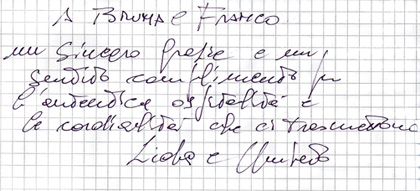 A Bruna e Franco
un sincero grazie e un
sentito complimento per
l'autentica ospitalità e
la cordialità che ci trasmettono
Lioba e Umberto